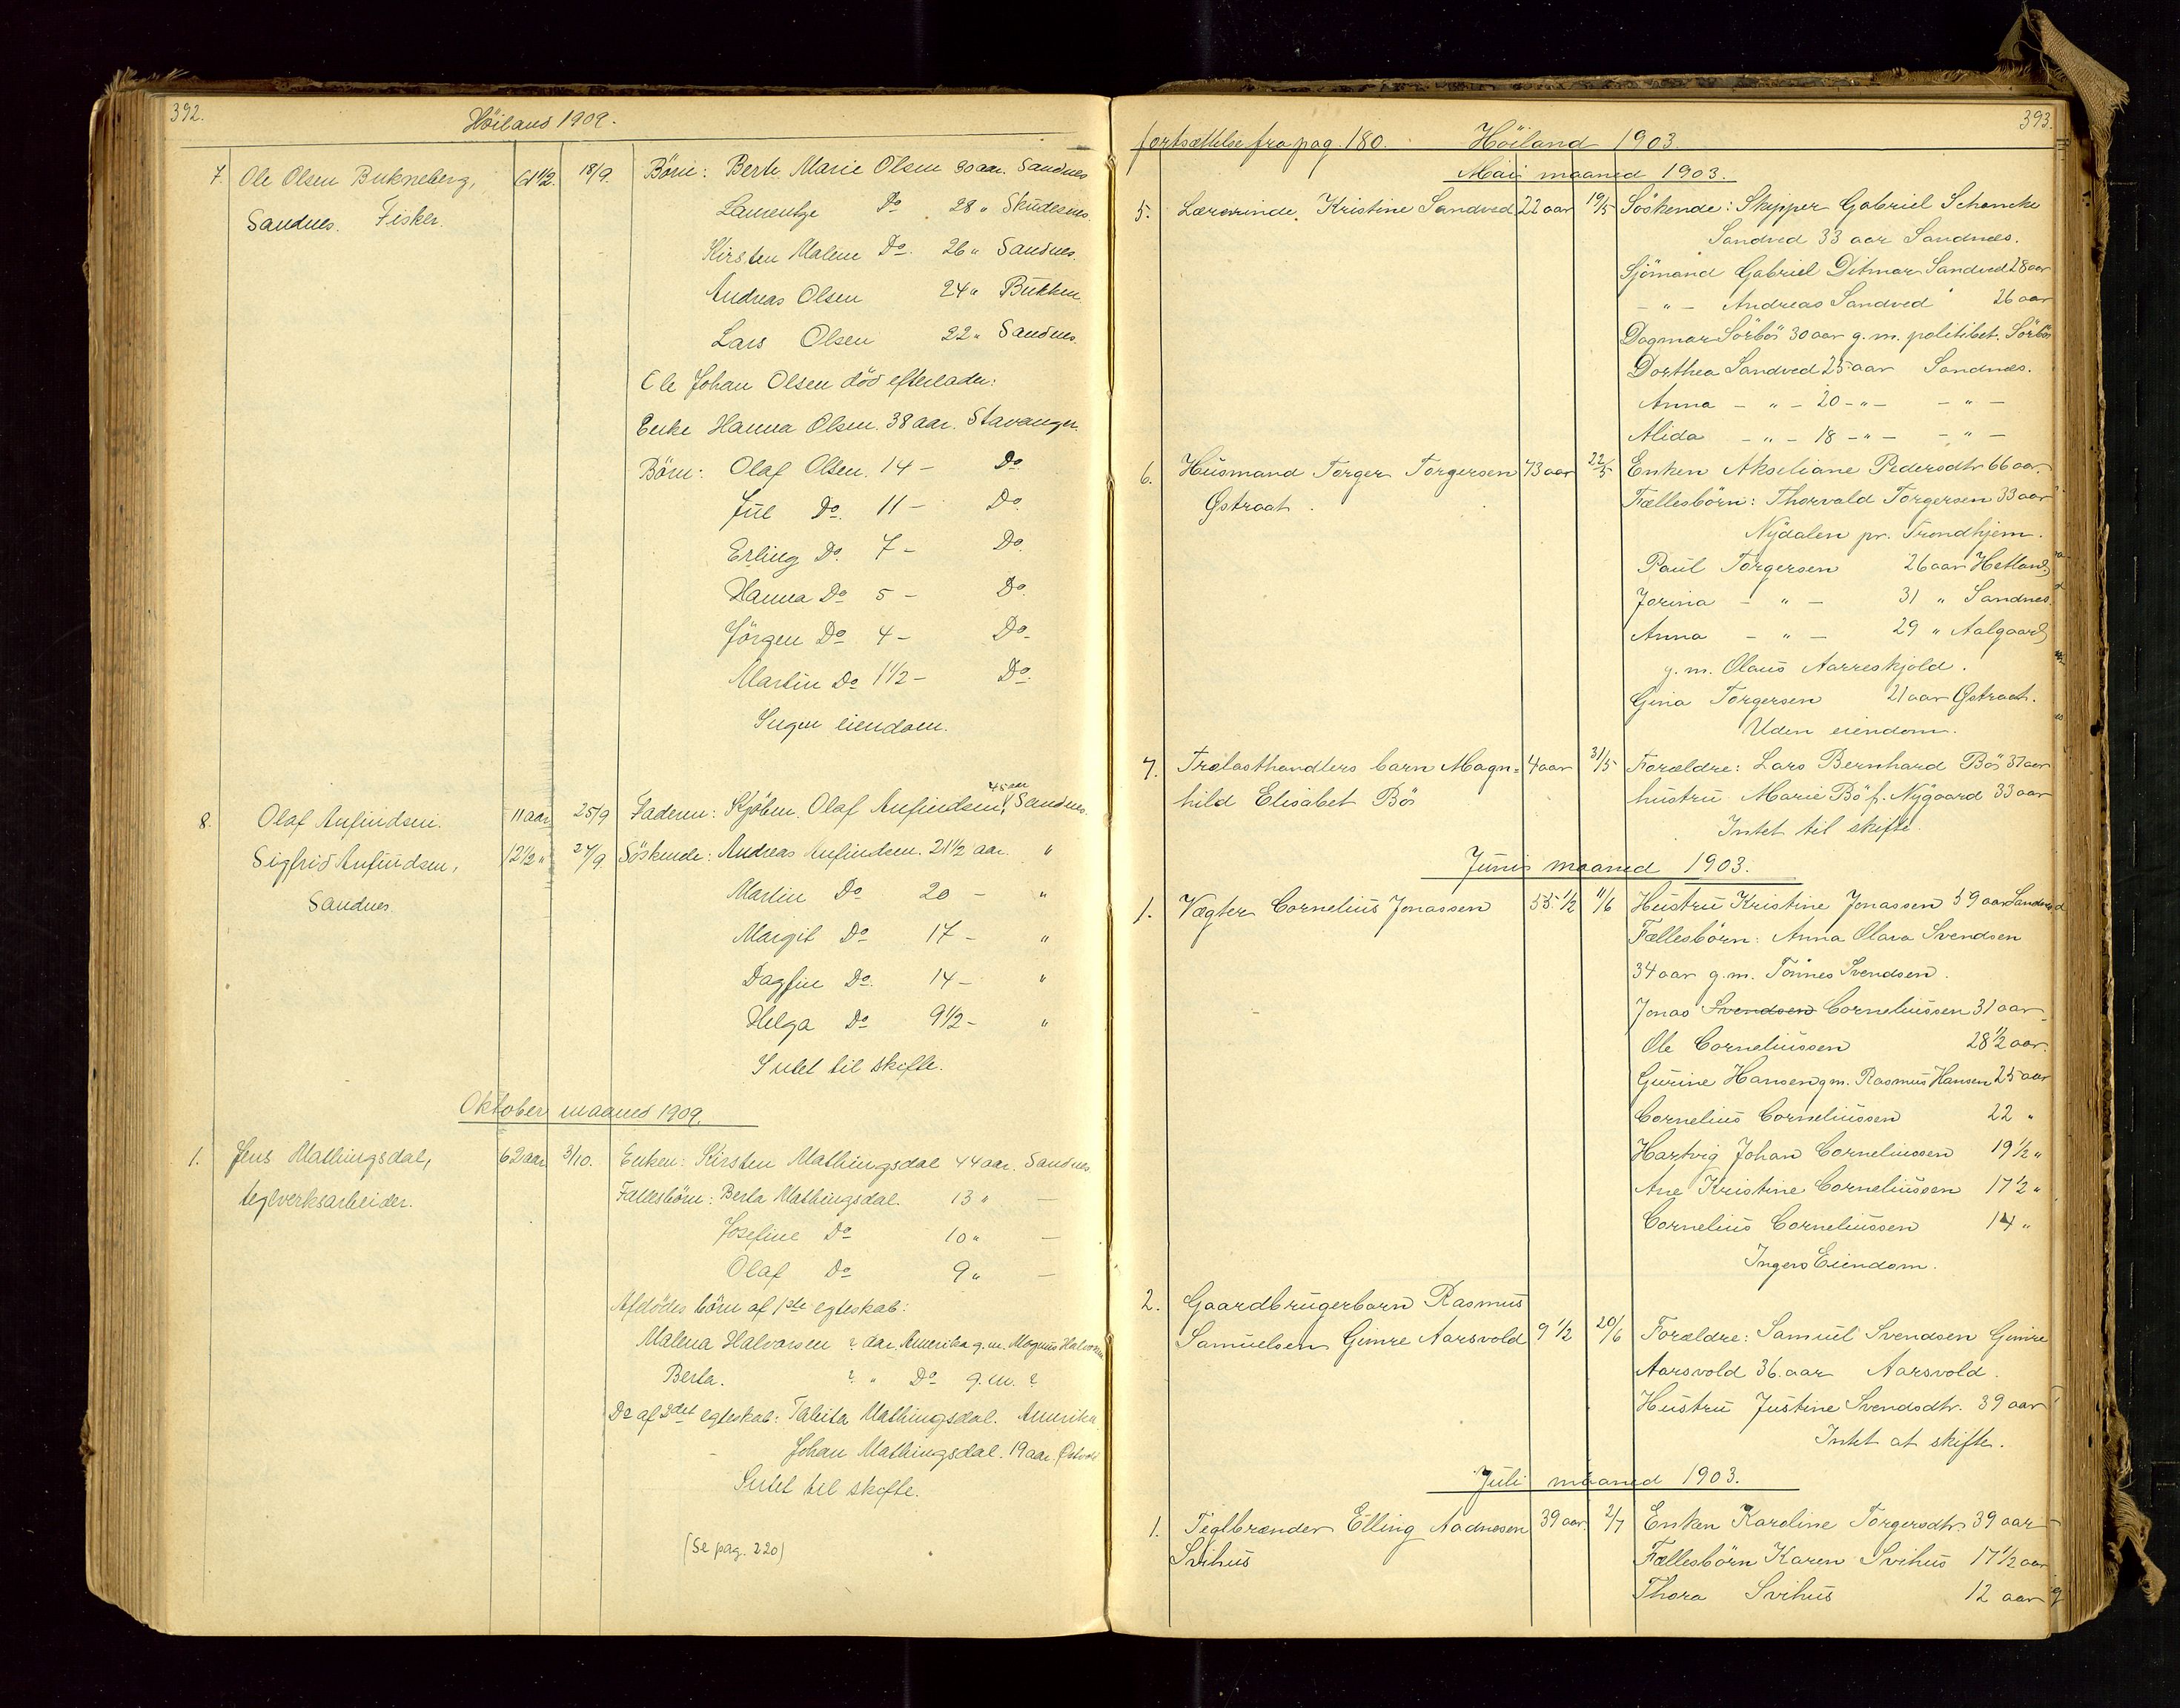 392.
Höiland 1909.
7. Ole Olsen Bukneberg, 61 1/2. 18/9. Börn: Berte Marie Olsen 30 aar. Sandnes
Sandnes. Fisker. Laurentze Do 28 " Skudesnes.
Kirsten Malene Do. 26 " Sandnes.
Andreas Olsen 24 " Bukken.
Lars Olsen 22 " Sandnes.
Ole Johan Olsen död efterlader:
Enke Hanna Olsen. 38 aar. Stavanger.
Börn: Olaf Olsen. 14 - Do
Jul Do. 11 - Do.
Erling Do. 7 - Do.
Hanna Do 5 - Do.
Jörgen Do 4 - Do.
Martin Do 1 1/2 - Do.
Ingen eiendom.
45 aar
8. Olaf Anfindsen. 11 aar 25/9 Faderen: Kjöbm. Olaf Anfindsen, Sandnes.
Sigfrid Anfindsen, 12 1/2 " 27/9. Söskende: Andreas Anfindsen. 21 1/2 aar. "
Sandnes. Martin Do 20 - "
Margit Do 17 - "
Dagfin Do. 14 - "
Helga Do 9 1/2 - "
Intet til skifte.
Oktober maaned 1909.
1. Jens Mathingsdal, 62 aar 3/10. Enken: Kirsten Mathingsdal 44 aar. Sandnes
teglverksarbeider. Fællesbörn: Berta Mathingsdal. 13 " —
Josefine Do 10 " —
Olaf Do 9 " —
Afdödes börn af 1ste egteskab:
Malena Halvorsen ? aar. Amerika g.m. Magnus Halvorsen
Berta. ? " Do g.m. ?
Do af 3det egteskab: Tabita Mathingsdal. Amerika
- Johan Mathingsdal. 19 aar.
Intet til skifte.
(Se pag. 220)
393.
fortsættelse fra pag. 180. Höiland 1903.
Mai maaned 1903.
5. Lærerinde, Kristine Sandved 22 aar 19/5 Söskende: Skipper Gabriel Schancke
Sandved 33 aar Sandnes.
Sjömand Gabriel Ditmar Sandved 28 aar
- " - Andreas Sandved 26 aar
Dagmar Sörbö 30 aar g.m. politibet. Sörbö
Dorthea Sandved 25 aar Sandnes.
Anna - " - 20 - " - - " -
Alida - " - 18 - " - - " -
6. Husmand Torger Torgersen 73 aar 22/5 Enken Akseliane Pedersdtr 66 aar
Østraat. Fællesbörn: Thorvald Torgersen 33 aar
Nydalen pr. Trondhjem.
Paul Torgersen 26 aar Hetland
Jorina - " - 31 " Sandnes.
Anna - " - 29 " Aalgaard
g.m. Olaus Aarreskjold.
Gina Torgersen 21 aar Østraat.
Uden eiendom.
7. Trælasthandlers barn Magn= 4 aar 31/5 Forældre: Lars Bernhard Bö 37 aar
hild Elisabet Bö hustru Marie Bö f. Nygaard 33 aar
Intet til skifte.
Juni maaned 1903.
1. Vægter Cornelius Jonassen 55 1/2 11/6 Hustru Kristine Jonassen 59 aar Sandnes
Fællesbörn: Anna Olava Svendsen
34 aar g.m. Tönnes Svendsen.
Jonas Svendsen Corneliussen 31 aar
Ole Corneliussen 28 1/2 aar.
Gurine Hansen g.m. Rasmus Hansen 25 aar
Cornelius Corneliussen 22 "
Hartvig Johan Corneliussen 19 1/2 "
Ane Kristine Corneliussen 17 1/2 "
Cornelius Corneliussen 14 "
Ingen Eiendom.
2. Gaardbrugerbarn Rasmus
Samuelsen Gimre Aarsvold 9 1/2 20/6 Forældre: Samuel Svendsen Gimre
Aarsvold 36 aar Aarsvold.
Hustru Justine Svendsdtr. 39 aar
Intet at skifte.
Juli maaned 1903.
1. Teglbrænder Elling Aadnesen 39 aar. 2/7 Enken Karoline Torgersdtr. 39 aar
Svihus Fællesbörn Karen Svihus 17 1/2 aar
Thora Svihus 12 aar